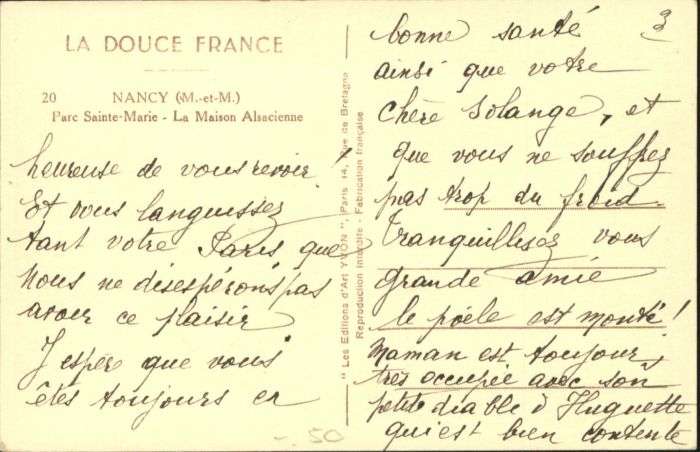 LA DOUCE FRANCE
20 NANCY (M.-et-M.)
Parc Sainte-Marie - La Maison Alsacienne
heureuse de vous revoir !
Et vous languissez
tant votre Paris que
nous ne désespérons pas
avoir ce plaisir
J'espère que vous
êtes toujours en
"Les Editions d'Art YVON", Paris 14, Rue de Bretagne
Reproduction Interdite - Fabrication française
3
bonne santé
ainsi que votre
chère Solange, et
que vous ne souffrez
pas trop du froid.
Tranquillisez vous
grande amie
le poêle est monté !
Maman est toujours
très occupée avec son
petit diable d'Huguette
qui est bien contente
-.50